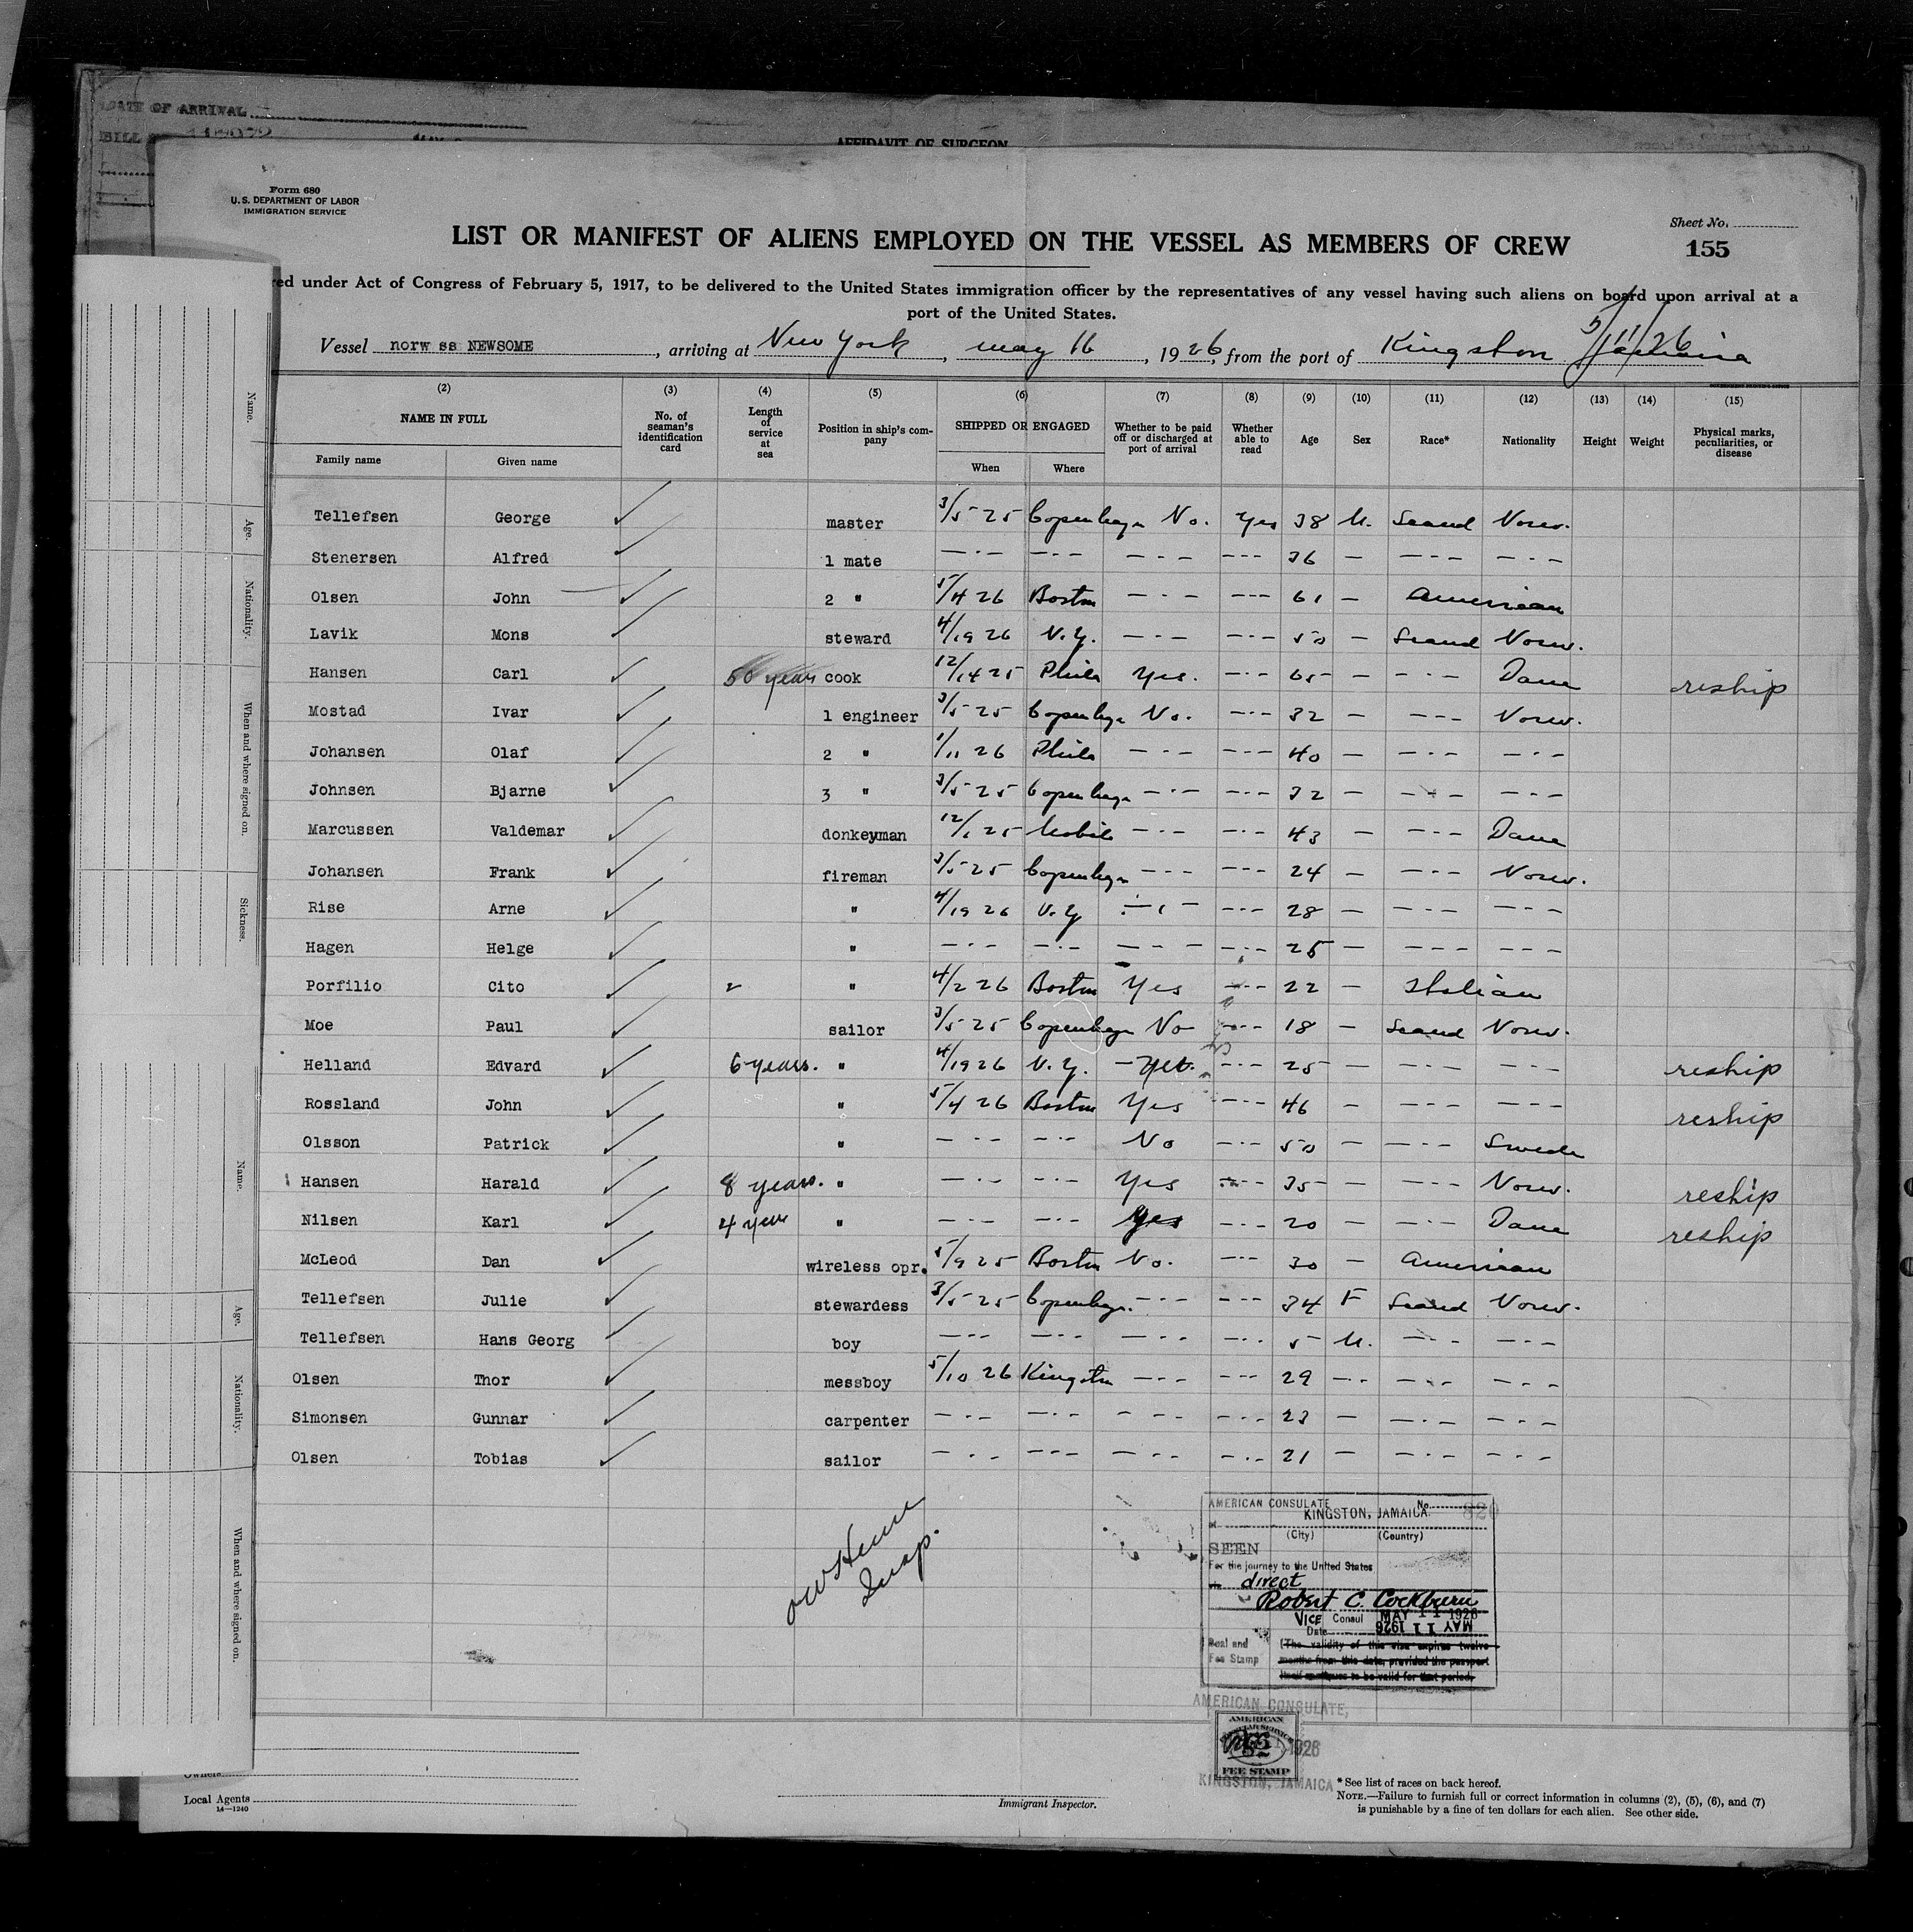 DATE OF ARRIVAL
BILL
AFFIDAVIT OF SURGEON
Form 680
U. S. DEPARTMENT OF LABOR
IMMIGRATION SERVICE
Sheet No.
155
LIST OR MANIFEST OF ALIENS EMPLOYED ON THE VESSEL AS MEMBERS OF CREW
red under Act of Congress of February 5, 1917, to be delivered to the United States immigration officer by the representatives of any vessel having such aliens on board upon arrival at a
port of the United States.
5/11/26
Vessel norw ss NEWSOME, arriving at New York, may 16, 1926, from the port of Kingston Jamaica
(2) (3) (4) (5) (6) (7) (8) (9) (10) (11) (12) (13) (14) (15)
NAME IN FULL No. of seaman's identification card Length of service at sea Position in ship's company SHIPPED OR ENGAGED Whether to be paid off or discharged at port of arrival Whether able to read Age Sex Race* Nationality Height Weight Physical marks, peculiarities, or disease
Family name Given name When Where
Tellefsen George ✓ master 3/5 25 Copenhagn No. Yes 38 M. Scand Norw.
Stenersen Alfred ✓ 1 mate —·— —·— —·— —·— 36 — —·— —·—
Olsen John ✓ 2 " 5/4 26 Boston —·— —·— 61 — American
Lavik Mons ✓ steward 4/19 26 N.Y. —·— —·— 50 — Scand Norw.
Hansen Carl ✓ 50 years cook 12/14 25 Phila Yes. —·— 65 — —·— Dane reship
Mostad Ivar ✓ 1 engineer 3/5 25 Copenhagn No. —·— 32 — —·— Norw.
Johansen Olaf ✓ 2 " 1/11 26 Phila —·— —·— 40 — —·— —·—
Johnsen Bjarne ✓ 3 " 3/5 25 Copenhagn —·— —·— 32 — —·— —·—
Marcussen Valdemar ✓ donkeyman 12/1 25 Mobile —·— —·— 43 — —·— Dane
Johansen Frank ✓ fireman 3/5 25 Copenhagn —·— —·— 24 — —·— Norw.
Rise Arne ✓ " 4/19 26 N.Y —·— —·— 28 — —·— —·—
Hagen Helge ✓ " —·— —·— —·— —·— 25 — —·— —·—
Porfilio Cito ✓ " 4/2 26 Boston Yes —·— 22 — Italian
Moe Paul ✓ sailor 3/5 25 Copenhagn No —·— 18 — Scand Norw.
Helland Edvard ✓ 6 years. " 4/19 26 N.Y. Yes. —·— 25 — —·— —·— reship
Rossland John ✓ " 5/4 26 Boston Yes —·— 46 — —·— —·— reship
Olsson Patrick ✓ " —·— —·— No —·— 50 — —·— Swede
Hansen Harald ✓ 8 years. " —·— —·— Yes —·— 35 — —·— Norw. reship
Nilsen Karl ✓ 4 year " —·— —·— Yes —·— 20 — —·— Dane reship
McLeod Dan ✓ wireless opr. 5/9 25 Boston No. —·— 30 — American
Tellefsen Julie ✓ stewardess 3/5 25 Copenhagn. —·— —·— 34 F Scand Norw.
Tellefsen Hans Georg ✓ boy —·— —·— —·— —·— 5 M. —·— —·—
Olsen Thor ✓ messboy 5/10 26 Kingston —·— —·— 29 — —·— —·—
Simonsen Gunnar ✓ carpenter —·— —·— —·— —·— 23 — —·— —·—
Olsen Tobias ✓ sailor —·— —·— —·— —·— 21 — —·— —·—
Insp.
AMERICAN CONSULATE No. 820
at KINGSTON, JAMAICA.
(City) (Country)
SEEN
For the journey to the United States
via direct
Robert C. Cockburn
VICE Consul MAY 11 1926
Date MAY 11 1926
Seal and Fee Stamp
(The validity of this visa expires twelve
months from this date, provided the passport
itself continues to be valid for that period.
AMERICAN CONSULATE,
AMERICAN
CONSULAR SERVICE
FEE STAMP
1926
KINGSTON, JAMAICA
Owners
Local Agents
14—1240
Immigrant Inspector.
*See list of races on back hereof.
NOTE.—Failure to furnish full or correct information in columns (2), (5), (6), and (7)
is punishable by a fine of ten dollars for each alien. See other side.
Name.
Age.
Nationality.
When and where signed on.
Sickness.
Name.
Age.
Nationality.
When and where signed on.